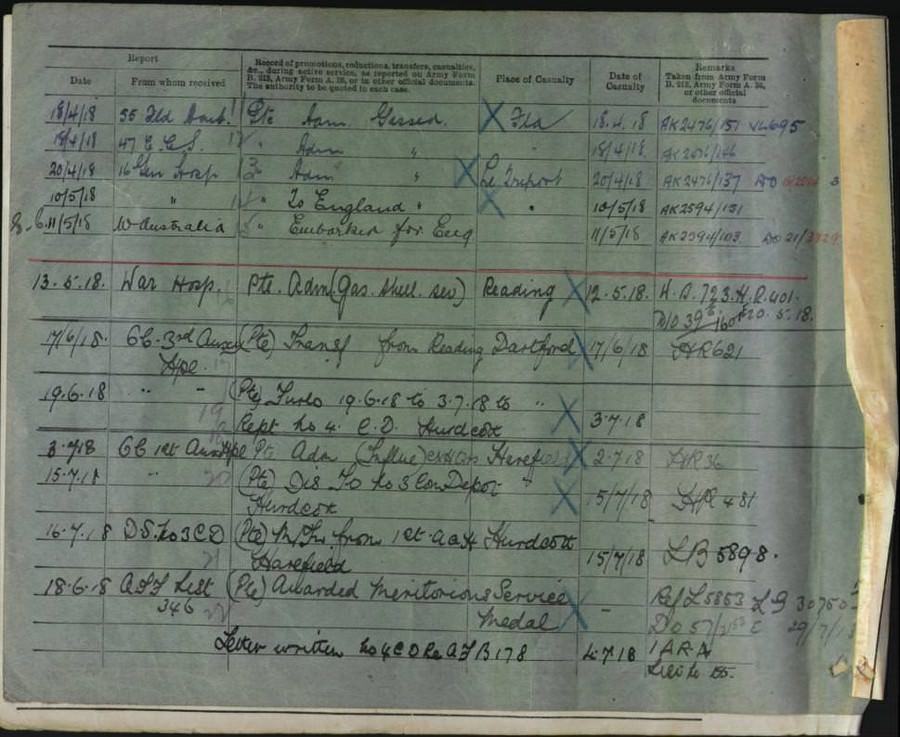 Report
Record of promotions, reductions, transfers, casualties,
&c., during active service, as reported on Army Form
B. 213, Army Form A. 36, or in other official documents.
The authority to be quoted in each case.
Place of Casualty
Date of
Casualty
Remarks
Taken from Army Form
B. 213, Army Form A. 36,
or other official
documents
Date From whom received
18/4/18 55 Fld Amb. Pte Adm. Gassed. Fld 18.4.18 AK2476/151
18/4/18 47 C.C.S. " Adm " " 18/4/18
20/4/18 16 Gen Hosp Adm " Le Treport 20/4/18 AK2476/137 DO
10/5/18 " " To England " " 10/5/18 AK2594/151
11/5/18 W-Australia " Embarked for Eng 11/5/18 AK2594/103 DO 21/
13.5.18. War Hosp. Pte. Adm (Gas. Shell. sev) Reading 12.5.18. H.R.401.
20.5.18.
17/6/18. 3rd Aux (Pte) Transf from Reading Dartford 17/6/18 HR621
Hpl.
19.6.18 " " (Pte) Furlo 19.6.18 to 3.7.18 to "
Rept No 4. C.D. Hurdcott 3.7.18
3.7.18 1st Aux Hpl Pte Adm Harefield 2.7.18 HR36
15.7.18 " (Pte) Dis To No 3 Con Depot " 15/7/18 HR 481
Hurdcott
16.7.18 D.S. No 3 CD (Pte) M/In from 1st A.A.H Hurdcott
Harefield 15/7/18 LB 5898.
18.6.18 A.I.F List (Pte) Awarded Meritorious Service - Ref L5853 LG 30750
346 Medal DO 57/ 29/7/18
Letter written No 4 CD Re A.F B178 4.7.18 IARA